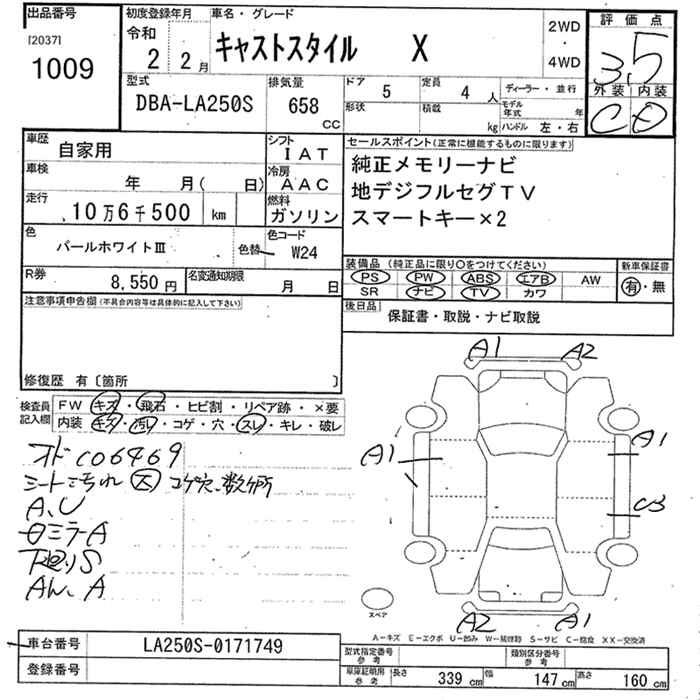 出品番号
[2037]
1009
初度登録年月
令和
2 2月
車名・グレード
キャストスタイル X
2WD
・
4WD
評価点
3.5
外装 内装
C D
型式
DBA-LA250S
排気量
658
CC
ドア 5
形状
定員 4 人
積載 kg
ディーラー・並行
モデル年式 年
ハンドル 左・右
車歴
自家用
シフト
IAT
車検
年 月( 日)
冷房
AAC
走行
10万6千500 km
燃料
ガソリン
色
パールホワイトⅢ
色替
色コード
W24
R券
8,550円
名変通知期限
月 日
セールスポイント(正常に機能するものに限ります)
純正メモリーナビ
地デジフルセグTV
スマートキー×2
装備品 (純正品に限り○をつけてください)
PS PW ABS エアB AW
SR ナビ TV カワ
新車保証書
有・無
後日品
保証書・取説・ナビ取説
注意事項申告欄(不具合内容等は具体的に記入して下さい)
修復歴 有〔箇所 〕
検査員記入欄
FW キズ・飛石・ヒビ割・リペア跡・×要
内装 キズ・汚レ・コゲ・穴・スレ・キレ・破レ
オドC06469
シート汚れ 大 コゲ穴数ヶ所
A、U
ミラーA
下廻りS
AW、A
A1 A2
A1 A1
C3
A2 A1
スペア
A-キズ E-エクボ U-凹み W-補修跡 S-サビ C-腐食 XX-交換済
車台番号
LA250S-0171749
登録番号
型式指定番号
参考
類別区分番号
参考
車庫証明用
参考
長さ 339 cm 幅 147 cm 高さ 160 cm